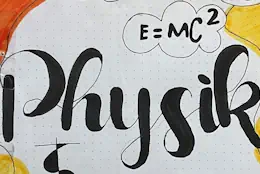 E=MC²
Physik